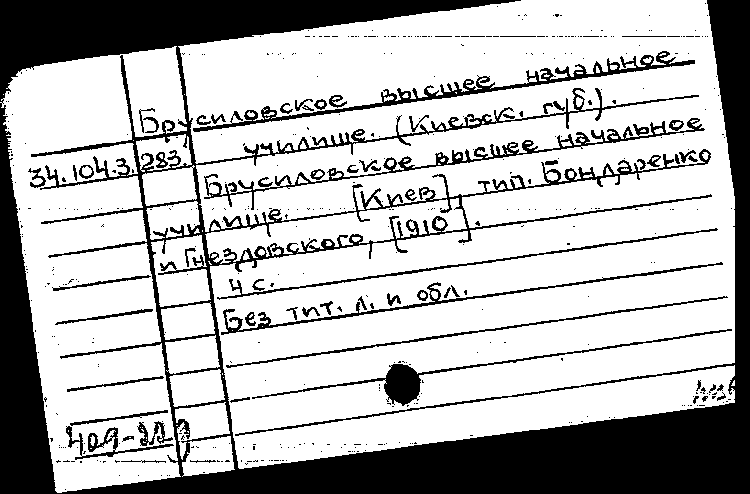 Брусиловское высшее начальное
училище. (Киевск. губ.).
34.104.3.283.
Брусиловское высшее начальное
училище. [Киев], тип. Бондаренко
и Гнездовского, [1910].
4 с.
Без тит. л. и обл.